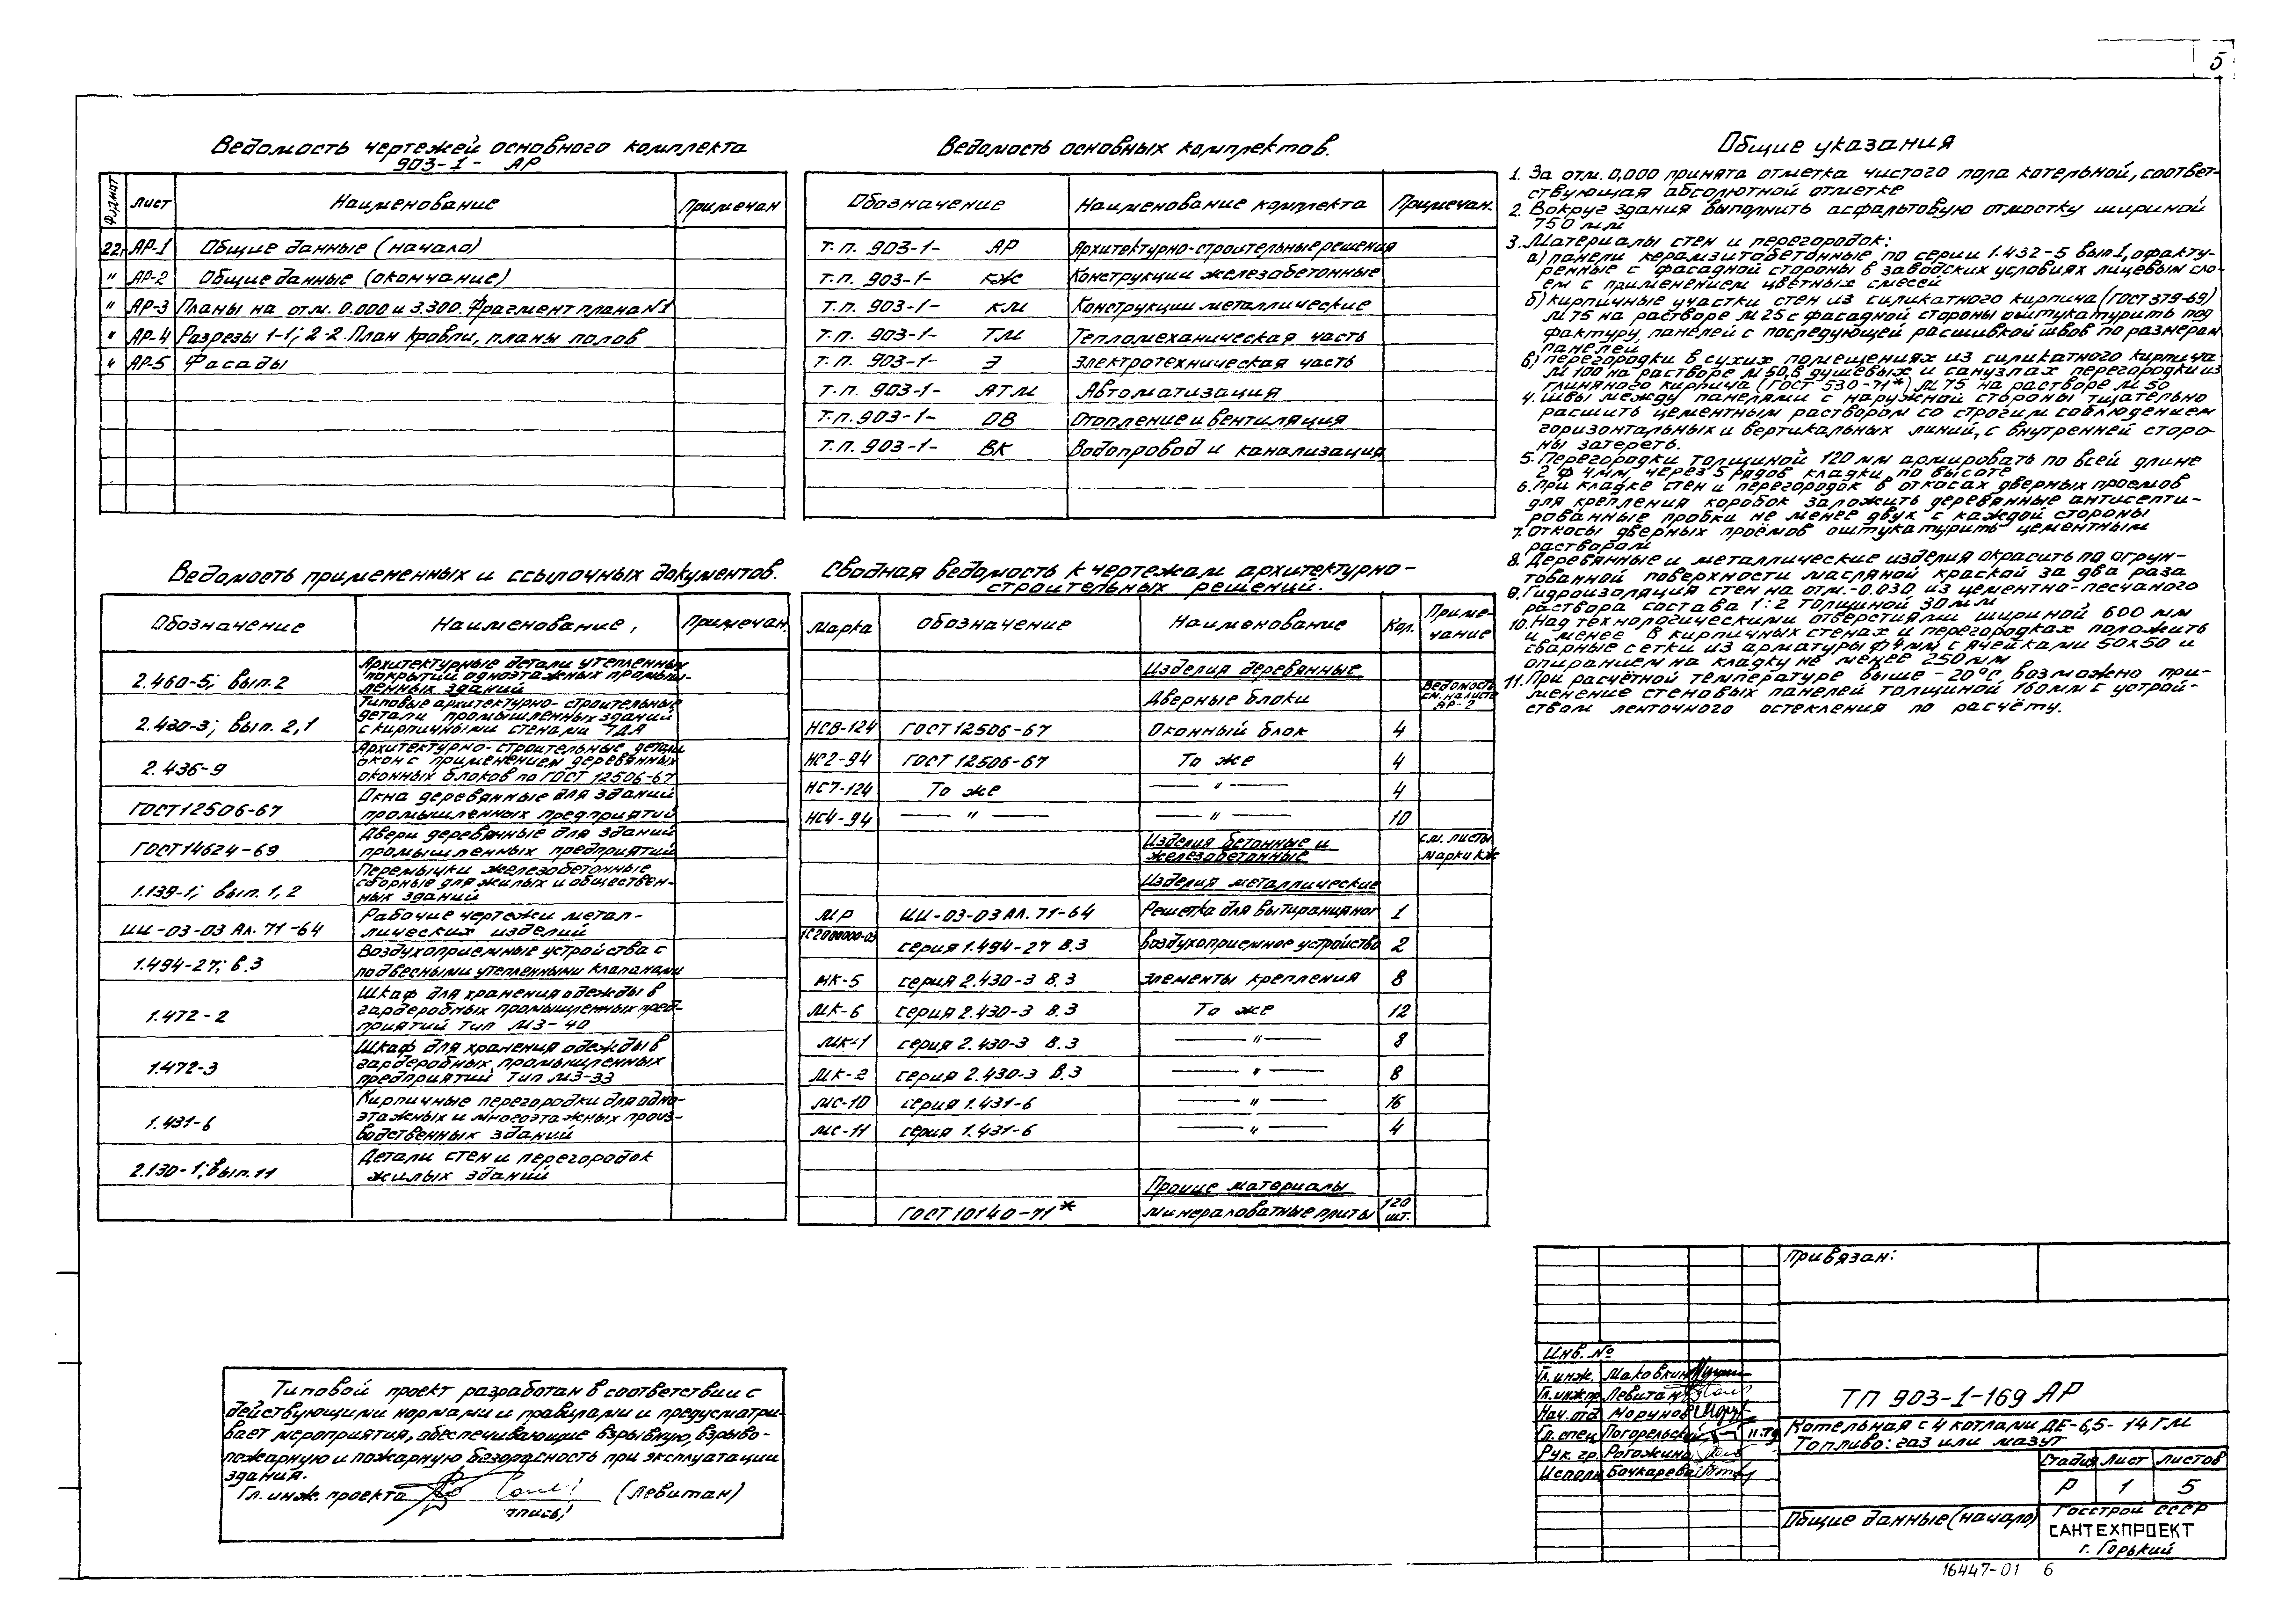 5
Ведомость чертежей основного комплекта
903-1- АР
Формат Лист Наименование Примечан
22г АР-1 Общие данные (начало)
" АР-2 Общие данные (окончание)
" АР-3 Планы на отм. 0.000 и 3.300. Фрагмент плана N1
" АР-4 Разрезы 1-1; 2-2. План кровли, планы полов
" АР-5 Фасады
Ведомость основных комплектов.
Обозначение Наименование комплекта Примечан.
Т.п. 903-1- АР Архитектурно-строительные решения
т.п. 903-1- КЖ Конструкции железобетонные
т.п. 903-1- КМ Конструкции металлические
т.п. 903-1- ТМ Тепломеханическая часть
т.п. 903-1- Э Электротехническая часть
т.п. 903-1- АТМ Автоматизация
т.п. 903-1- ОВ Отопление и вентиляция
т.п. 903-1- ВК Водопровод и канализация
Общие указания
1. За отм. 0,000 принята отметка чистого пола котельной, соответ-
ствующая абсолютной отметке
2. Вокруг здания выполнить асфальтовую отмостку шириной
750 мм
3. Материалы стен и перегородок:
а) панели керамзитобетонные по серии 1.432-5 вып1, офакту-
ренные с фасадной стороны в заводских условиях лицевым сло-
ем с применением цветных смесей
б) кирпичные участки стен из силикатного кирпича (ГОСТ 379-69)
М75 на растворе М25 с фасадной стороны оштукатурить под
фактуру, панелей с последующей расшивкой швов по размерам
панелей
в) перегородки в сухих помещениях из силикатного кирпича
М100 на растворе М50, в душевых и санузлах перегородки из
глиняного кирпича (ГОСТ 530-71*) М75 на растворе М50
4. Швы между панелями с наружной стороны тщательно
расшить цементным раствором со строгим соблюдением
горизонтальных и вертикальных линий, с внутренней сторо-
ны затереть.
5. Перегородки толщиной 120 мм армировать по всей длине
2 ф 4 мм, через 5 рядов кладки, по высоте
6. При кладке стен и перегородок в откосах дверных проемов
для крепления коробок заложить деревянные антисепти-
рованные пробки не менее двух с каждой стороны
7. Откосы дверных проёмов оштукатурить цементным
раствором
8. Деревянные и металлические изделия окрасить по огрун-
тованной поверхности масляной краской за два раза
9. Гидроизоляция стен на отм.-0.030 из цементно-песчаного
раствора состава 1:2 толщиной 30мм
10. Над технологическими отверстиями шириной 600 мм
и менее в кирпичных стенах и перегородках положить
сварные сетки из арматуры ф4мм с ячейками 50х50 и
опиранием на кладку не менее 250мм
11. При расчётной температуре выше -20°С возможно при-
менение стеновых панелей толщиной 160мм с устрой-
ством ленточного остекления по расчёту.
Ведомость примененных и ссылочных документов.
Обозначение Наименование, Примечан.
2.460-5; вып.2 Архитектурные детали утепленных
покрытий одноэтажных промыш-
ленных зданий
2.430-3; вып. 2,1 Типовые архитектурно-строительные
детали промышленных зданий
с кирпичными стенами ТДА
2.436-9 Архитектурно-строительные детали
окон с применением деревянных
оконных блоков по ГОСТ 12506-67
ГОСТ12506-67 Окна деревянные для зданий
промышленных предприятий
ГОСТ14624-69 Двери деревянные для зданий
промышленных предприятий
1.139-1; вып. 1, 2 Перемычки железобетонные
сборные для жилых и обществен-
ных зданий
ИИ-03-03 Ал. 71-64 Рабочие чертежи метал-
лических изделий
1.494-27; в.3 Воздухоприемные устройства с
подвесными утепленными клапанами
1.472-2 Шкаф для хранения одежды в
гардеробных промышленных пред-
приятий тип МЗ-40
1.472-3 Шкаф для хранения одежды в
гардеробных промышленных
предприятий тип МЗ-33
1.431-6 Кирпичные перегородки для одно-
этажных и многоэтажных произ-
водственных зданий
2.130-1; вып.11 Детали стен и перегородок
жилых зданий
Сводная ведомость к чертежам архитектурно-
строительных решений.
Марка Обозначение Наименование Кол. Приме-
чание
Изделия деревянные
Дверные блоки Ведомость
см. на листе
АР-2
НСВ-124 ГОСТ 12506-67 Оконный блок 4
НС2-94 ГОСТ 12506-67 То же 4
НС7-124 То же — " — 4
НС4-94 — " — — " — 10
Изделия бетонные и
железобетонные см. листы
марки КЖ
Изделия металлические
МР ИИ-03-03 Ал. 71-64 Решетка для вытирания ног 1
1С2000000-03 серия 1.494-27 в.3 Воздухоприемное устройство 2
МК-5 серия 2.430-3 в.3 Элементы крепления 8
МК-6 серия 2.430-3 в.3 То же 12
МК-1 серия 2.430-3 в.3 — " — 8
МК-2 серия 2.430-3 в.3 — " — 8
МС-10 серия 1.431-6 — " — 16
МС-11 серия 1.431-6 — " — 4
Прочие материалы
ГОСТ 10140-71* минераловатные плиты 120
шт.
Типовой проект разработан в соответствии с
действующими нормами и правилами и предусматри-
вает мероприятия, обеспечивающие взрывную, взрыво-
пожарную и пожарную безопасность при эксплуатации
здания.
Гл. инж. проекта (Левитан)
Привязан:
Инв. №
Гл. инж. Маковкин
Гл. инж пр Левитан
Нач. отд Морунов
Гл. спец Погорельский
Рук. гр. Рогожина
Исполн Бочкарева
ТП 903-1-169 АР
Котельная с 4 котлами ДЕ-6,5-14ГМ
Топливо: газ или мазут
Стадия Лист Листов
Р 1 5
Общие данные (начало)
Госстрой СССР
САНТЕХПРОЕКТ
г. Горький
16447-01 6